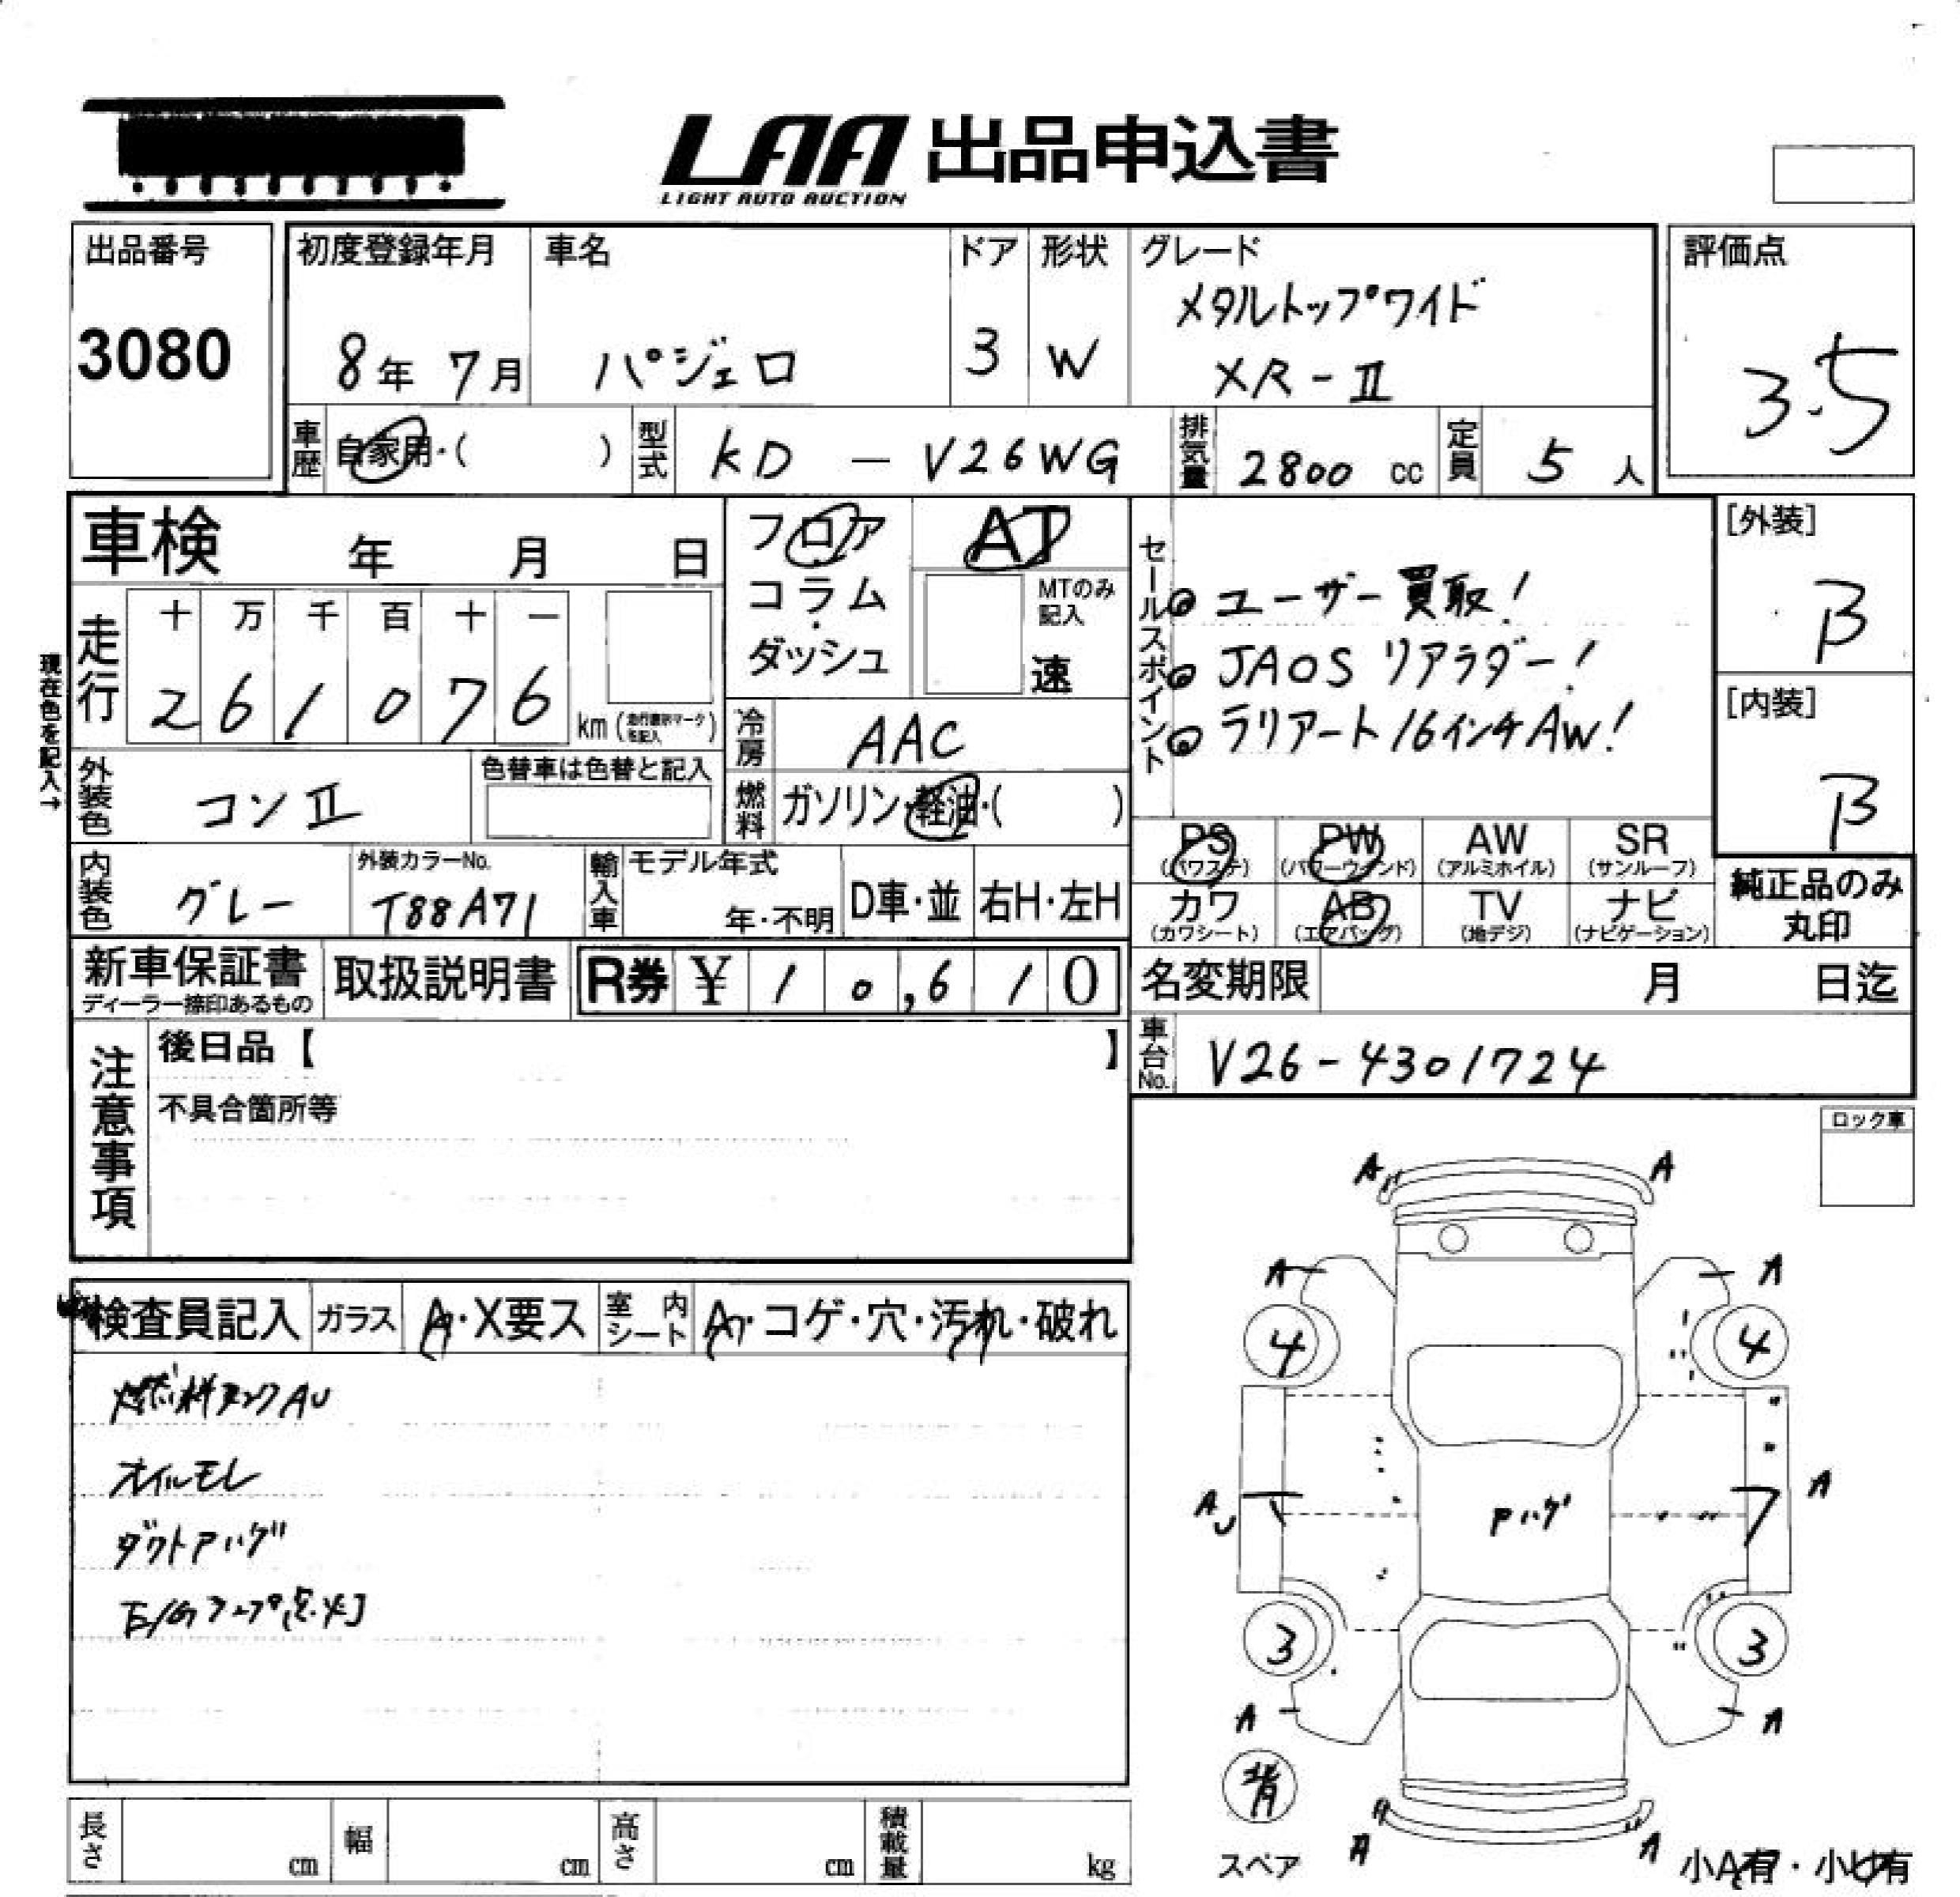 LAA 出品申込書
LIGHT AUTO AUCTION
出品番号
3080
初度登録年月
8年 7月
車名
パジェロ
ドア
3
形状
W
グレード
メタルトップワイド
XR-Ⅱ
評価点
3.5
車歴
自家用・( )
型式
KD - V26WG
排気量
2800 cc
定員
5 人
車検 年 月 日
フロア
コラム
ダッシュ
AT
MTのみ
記入
速
現在色を記入→
走行
十 万 千 百 十 一
2 6 1 0 7 6
km (
冷房
AAC
燃料
ガソリン・軽油・( )
外装色
コンⅡ
色替車は色替と記入
内装色
グレー
外装カラーNo.
T88A71
輸入車
モデル年式
年・不明
D車・並
右H・左H
セールスポイント
◎ユーザー買取!
◎JAOSリアラダー!
◎ラリアート16インチAW!
[外装]
B
[内装]
B
PS
(パワステ)
PW
(パワーウインド)
AW
(アルミホイル)
SR
(サンルーフ)
カワ
(カワシート)
AB
(エアバッグ)
TV
(地デジ)
ナビ
(ナビゲーション)
純正品のみ
丸印
新車保証書
ディーラー捺印あるもの
取扱説明書
R券 ¥ 1 0,6 1 0
名変期限 月 日迄
車台No.
V26-4301724
注意事項
後日品【 】
不具合箇所等
ロック車
検査員記入
ガラス
A・X要ス
室内シート
A・コゲ・穴・汚れ・破れ
燃料タンクAU
オイルモレ
ダクトPハゲ
E/Gランプ点灯
A A
A A
4 4
AU A
Pハゲ
3 3
A A
背
スペア
A
A A
小A有・小U有
長さ cm
幅 cm
高さ cm
積載量 kg